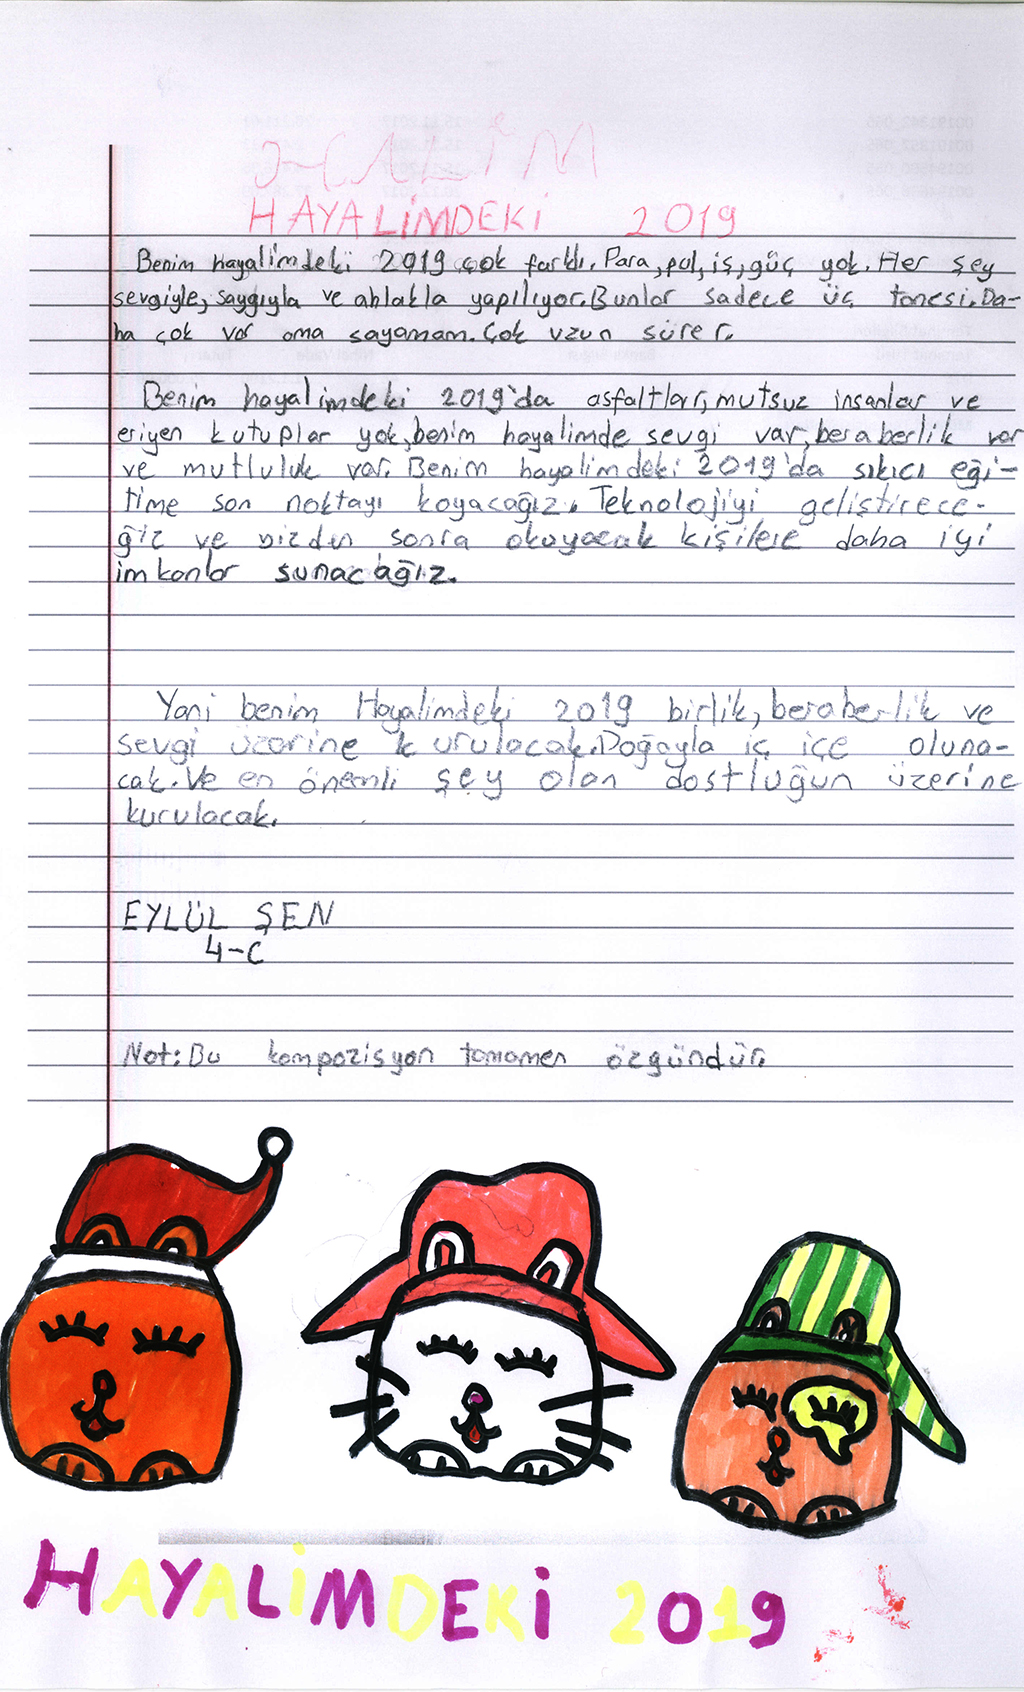 HALİM
HAYALİMDEKİ 2019
Benim hayalimdeki 2019 çok farklı. Para, pul, iş, güç yok. Her şey
sevgiyle, saygıyla ve ahlakla yapılıyor. Bunlar sadece üç tanesi. Da-
ha çok var ama sayamam. Çok uzun sürer.
Benim hayalimdeki 2019'da asfaltlar, mutsuz insanlar ve
eriyen kutuplar yok, benim hayalimde sevgi var, beraberlik var
ve mutluluk var. Benim hayalimdeki 2019'da sıkıcı eği-
time son noktayı koyacağız. Teknolojiyi geliştirece-
ğiz ve bizden sonra okuyacak kişilere daha iyi
imkanlar sunacağız.
Yani benim Hayalimdeki 2019 birlik, beraberlik ve
sevgi üzerine kurulacak. Doğayla iç içe oluna-
cak. Ve en önemli şey olan dostluğun üzerine
kurulacak.
EYLÜL ŞEN
4-C
Not: Bu kompozisyon tamamen özgündür.
HAYALİMDEKİ 2019